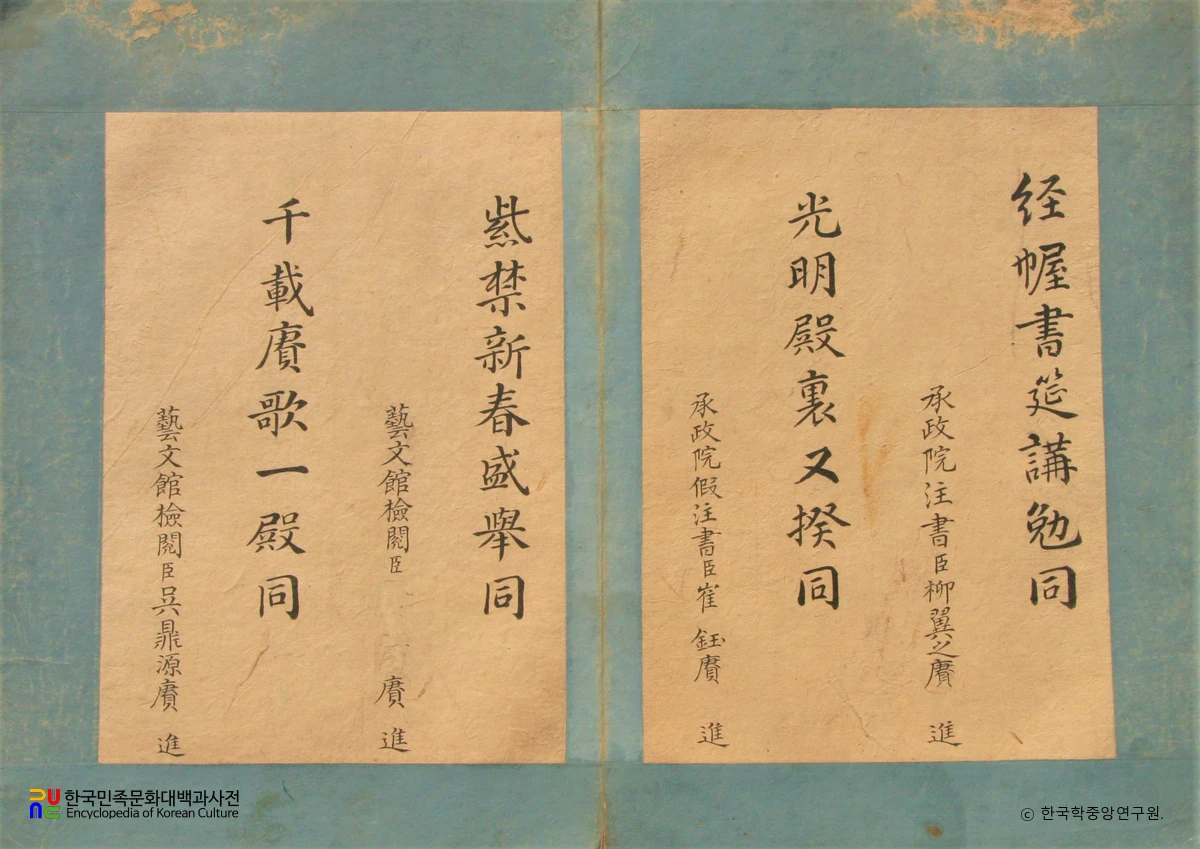 経幄書筵講勉同
承政院注書臣柳翼之賡 進
光明殿裏又揆同
承政院假注書臣崔 鈺賡 進
紫禁新春盛舉同
藝文館檢閱臣 賡 進
千載賡歌一殿同
藝文館檢閱臣吳鼎源賡 進
한국민족문화대백과사전
Encyclopedia of Korean Culture
ⓒ 한국학중앙연구원.